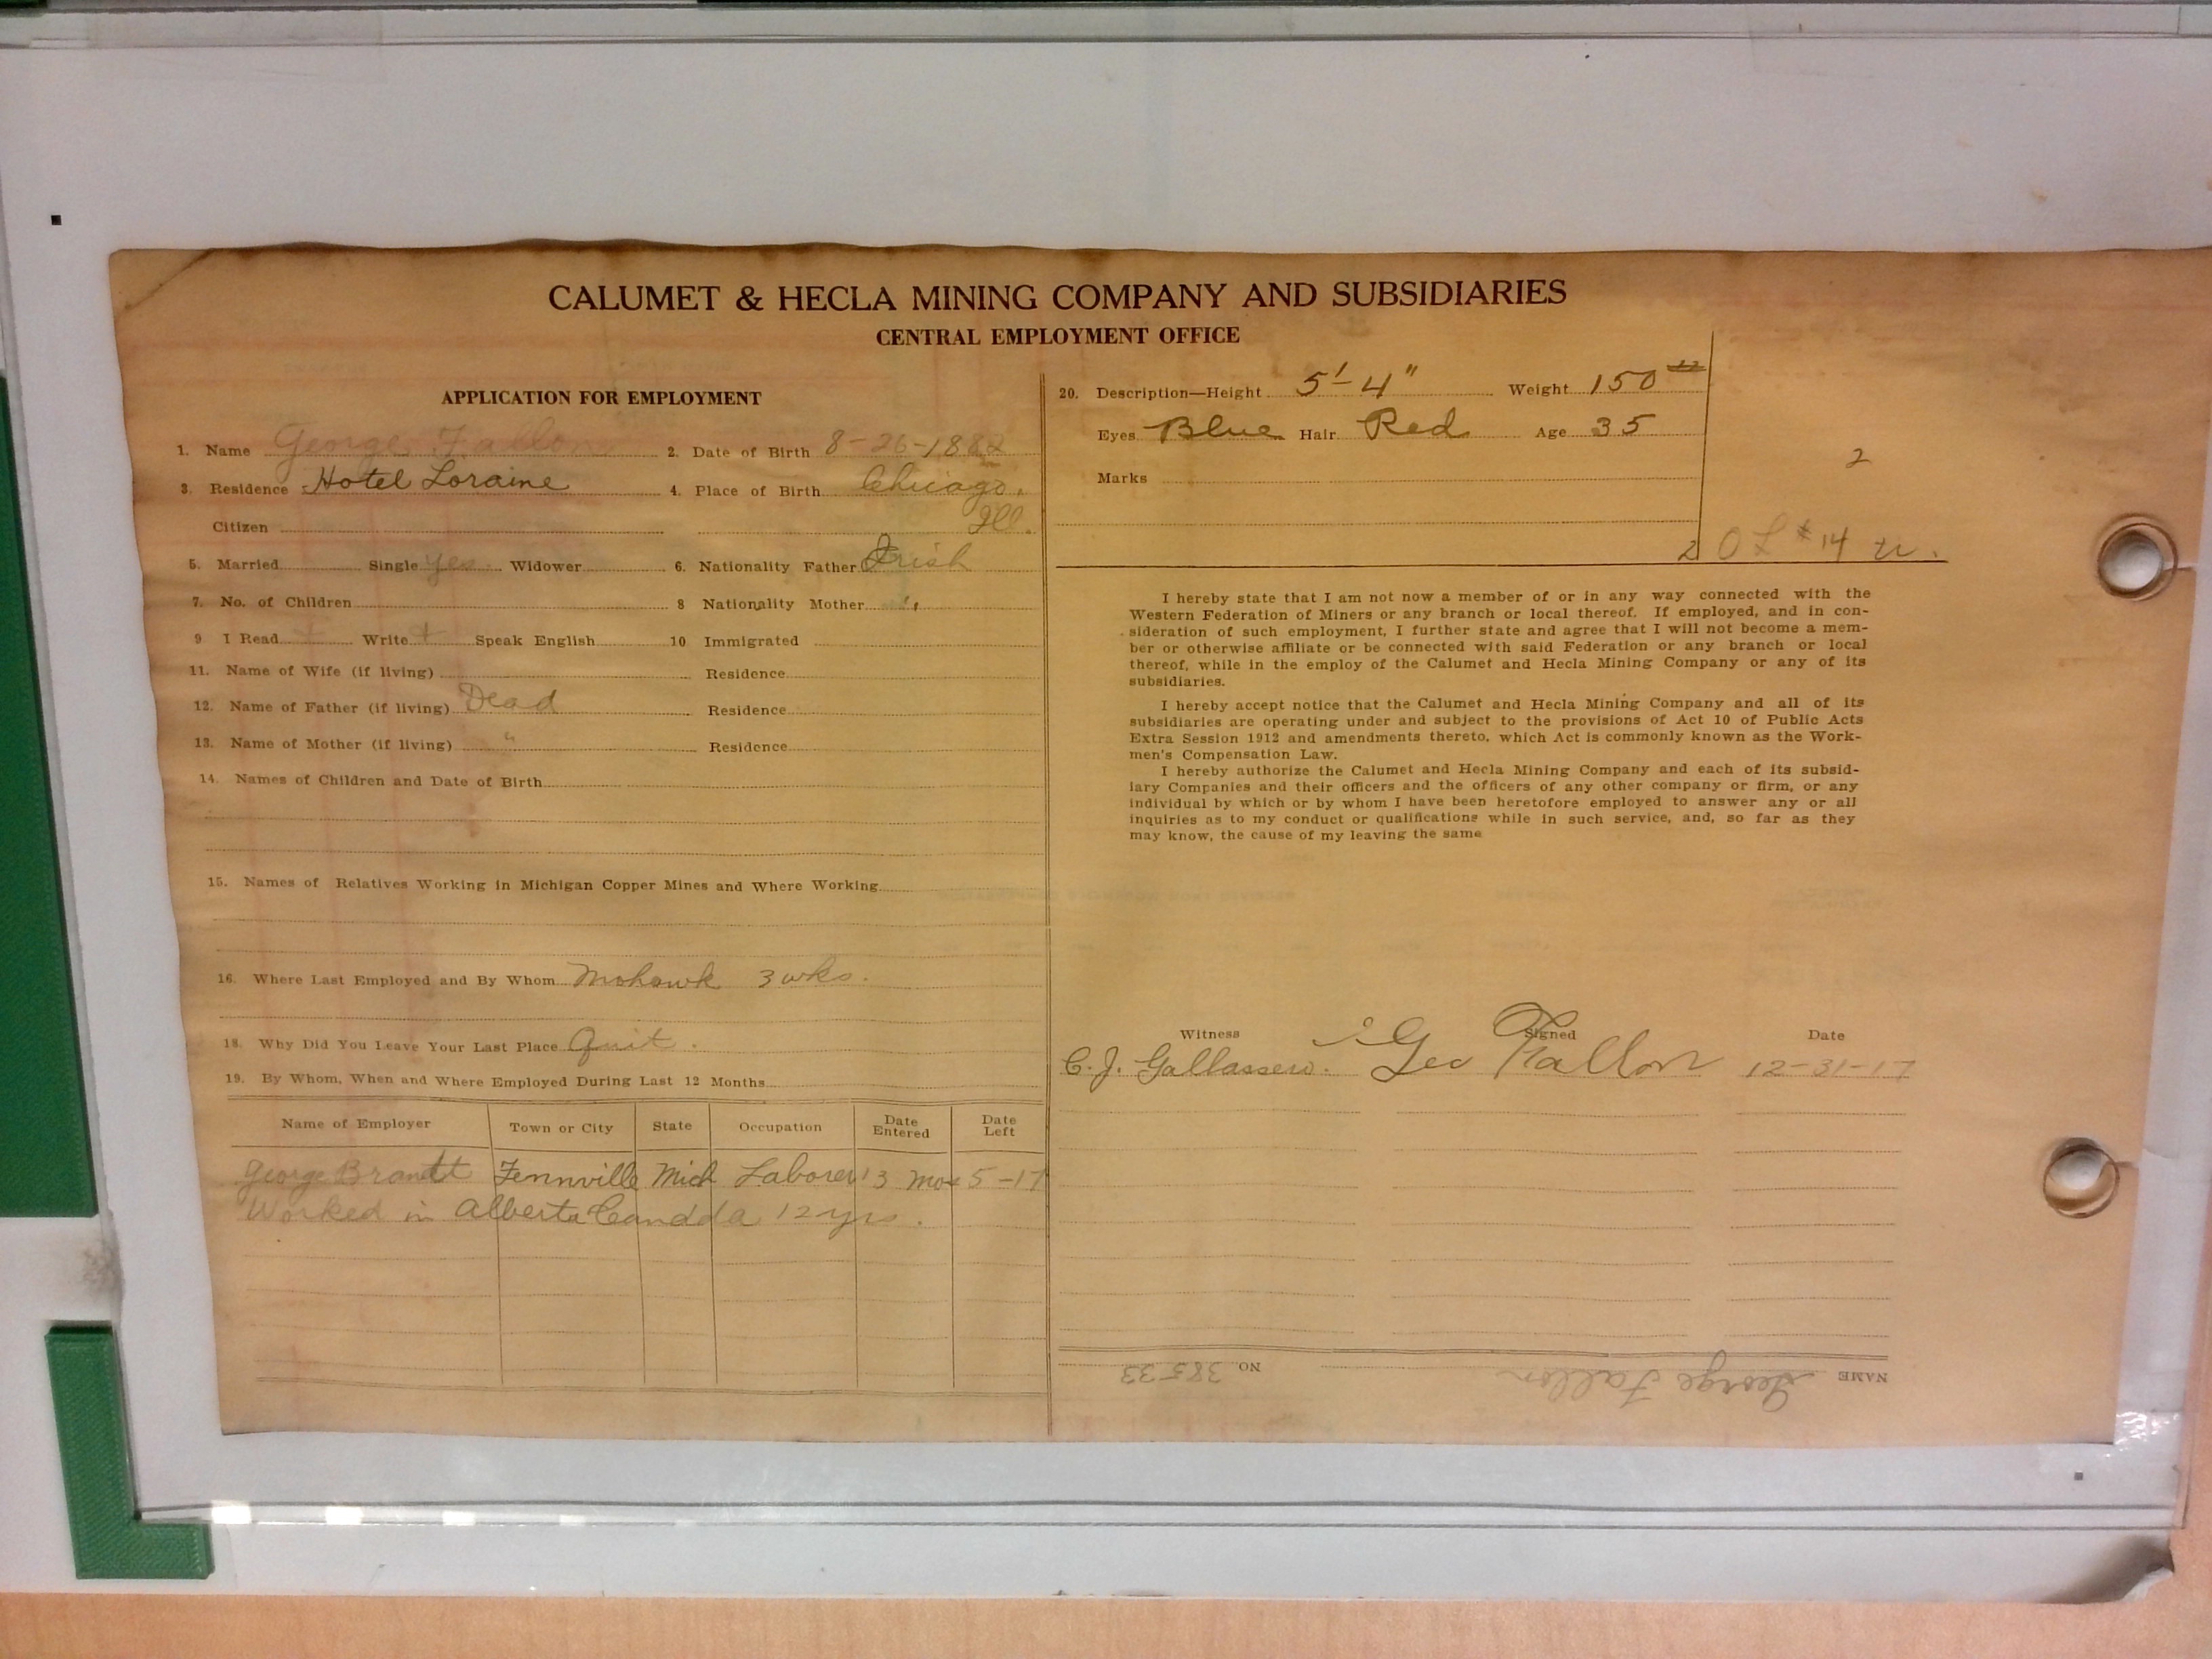 CALUMET & HECLA MINING COMPANY AND SUBSIDIARIES
CENTRAL EMPLOYMENT OFFICE
APPLICATION FOR EMPLOYMENT
1. Name George Fallon 2. Date of Birth 8-26-1882
3. Residence Hotel Loraine 4. Place of Birth Chicago,
Citizen Ill.
5. Married Single yes Widower 6. Nationality Father Irish
7. No. of Children 8 Nationality Mother "
9 I Read + Write + Speak English 10 Immigrated
11. Name of Wife (if living) Residence
12. Name of Father (if living) Dead Residence
13. Name of Mother (if living) " Residence
14. Names of Children and Date of Birth
15. Names of Relatives Working in Michigan Copper Mines and Where Working
16. Where Last Employed and By Whom Mohawk 3 wks.
18. Why Did You Leave Your Last Place Quit.
19. By Whom, When and Where Employed During Last 12 Months
Name of Employer Town or City State Occupation Date Entered Date Left
George Brandt Fennville Mich Laborer 13 mos 5-17
Worked in Alberta Candda 12 yrs.
20. Description—Height 5'-4" Weight 150
Eyes Blue Hair Red Age 35
Marks
2
2 O L #14
I hereby state that I am not now a member of or in any way connected with the
Western Federation of Miners or any branch or local thereof. If employed, and in con-
sideration of such employment, I further state and agree that I will not become a mem-
ber or otherwise affiliate or be connected with said Federation or any branch or local
thereof, while in the employ of the Calumet and Hecla Mining Company or any of its
subsidiaries.
I hereby accept notice that the Calumet and Hecla Mining Company and all of its
subsidiaries are operating under and subject to the provisions of Act 10 of Public Acts
Extra Session 1912 and amendments thereto, which Act is commonly known as the Work-
men's Compensation Law.
I hereby authorize the Calumet and Hecla Mining Company and each of its subsid-
iary Companies and their officers and the officers of any other company or firm, or any
individual by which or by whom I have been heretofore employed to answer any or all
inquiries as to my conduct or qualifications while in such service, and, so far as they
may know, the cause of my leaving the same
Witness Signed Date
C. J. Geo Fallon 12-31-17
NAME George Fallon NO 38533